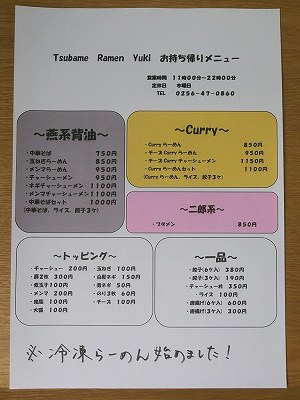 Tsubame Ramen Yuki お持ち帰りメニュー
営業時間 11時00分~22時00分
定休日 木曜日
TEL 0256-47-0860
~燕系背油~
・中華そば 750円
・玉ねぎらーめん 850円
・メンマらーめん 950円
・チャーシューメン 950円
・ネギチャーシューメン 1100円
・メンマチャーシューメン 1100円
・中華そばセット 1000円
(中華そば、ライス、餃子3ケ)
~Curry~
・Curryらーめん 850円
・チーズCurryらーめん 950円
・チーズCurryチャーシューメン 1150円
・Curryらーめんセット 1100円
(Curryらーめん、ライス、餃子3ケ)
~二郎系~
・ブタメン 850円
~トッピング~
・チャーシュー 200円
・豚2枚 300円
・煮玉子 100円
・メンマ 200円
・鬼脂 100円
・大盛 100円
・玉ねぎ 100円
・白髪ネギ 150円
・青ネギ 50円
・のり3枚 60円
・チーズ 100円
~一品~
・餃子(6ケ入) 380円
・餃子(3ケ入) 190円
・チャーシュー丼 350円
・ライス 100円
・唐揚げ(6ケ入) 600円
・唐揚げ(3ケ入) 300円
※冷凍らーめん始めました!